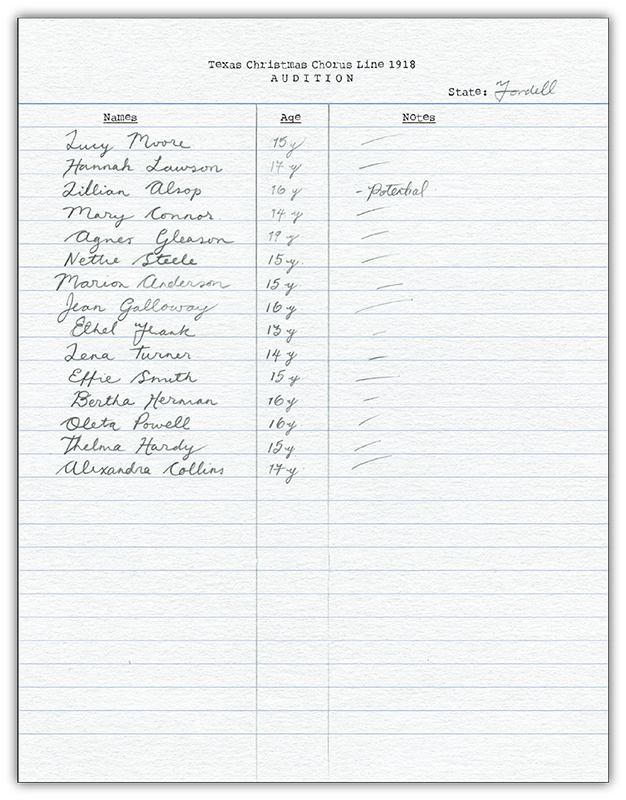 Texas Christmas Chorus Line 1918
AUDITION
State: Fordell
Names Age Notes
Lucy Moore 15y —
Hannah Lawson 17 y —
Lillian Alsop 16 y - Potential
Mary Connor 14 y —
Agnes Gleason 19 y —
Nettie Steele 15 y. —
Marion Anderson 15 y —
Jean Galloway 16 y —
Ethel Frank 13 y -
Lena Turner 14 y —
Effie Smith 15 y —
Bertha Herman 16 y -
Oleta Powell 16 y —
Thelma Hardy 15 y —
Alexandra Collins 17 y —